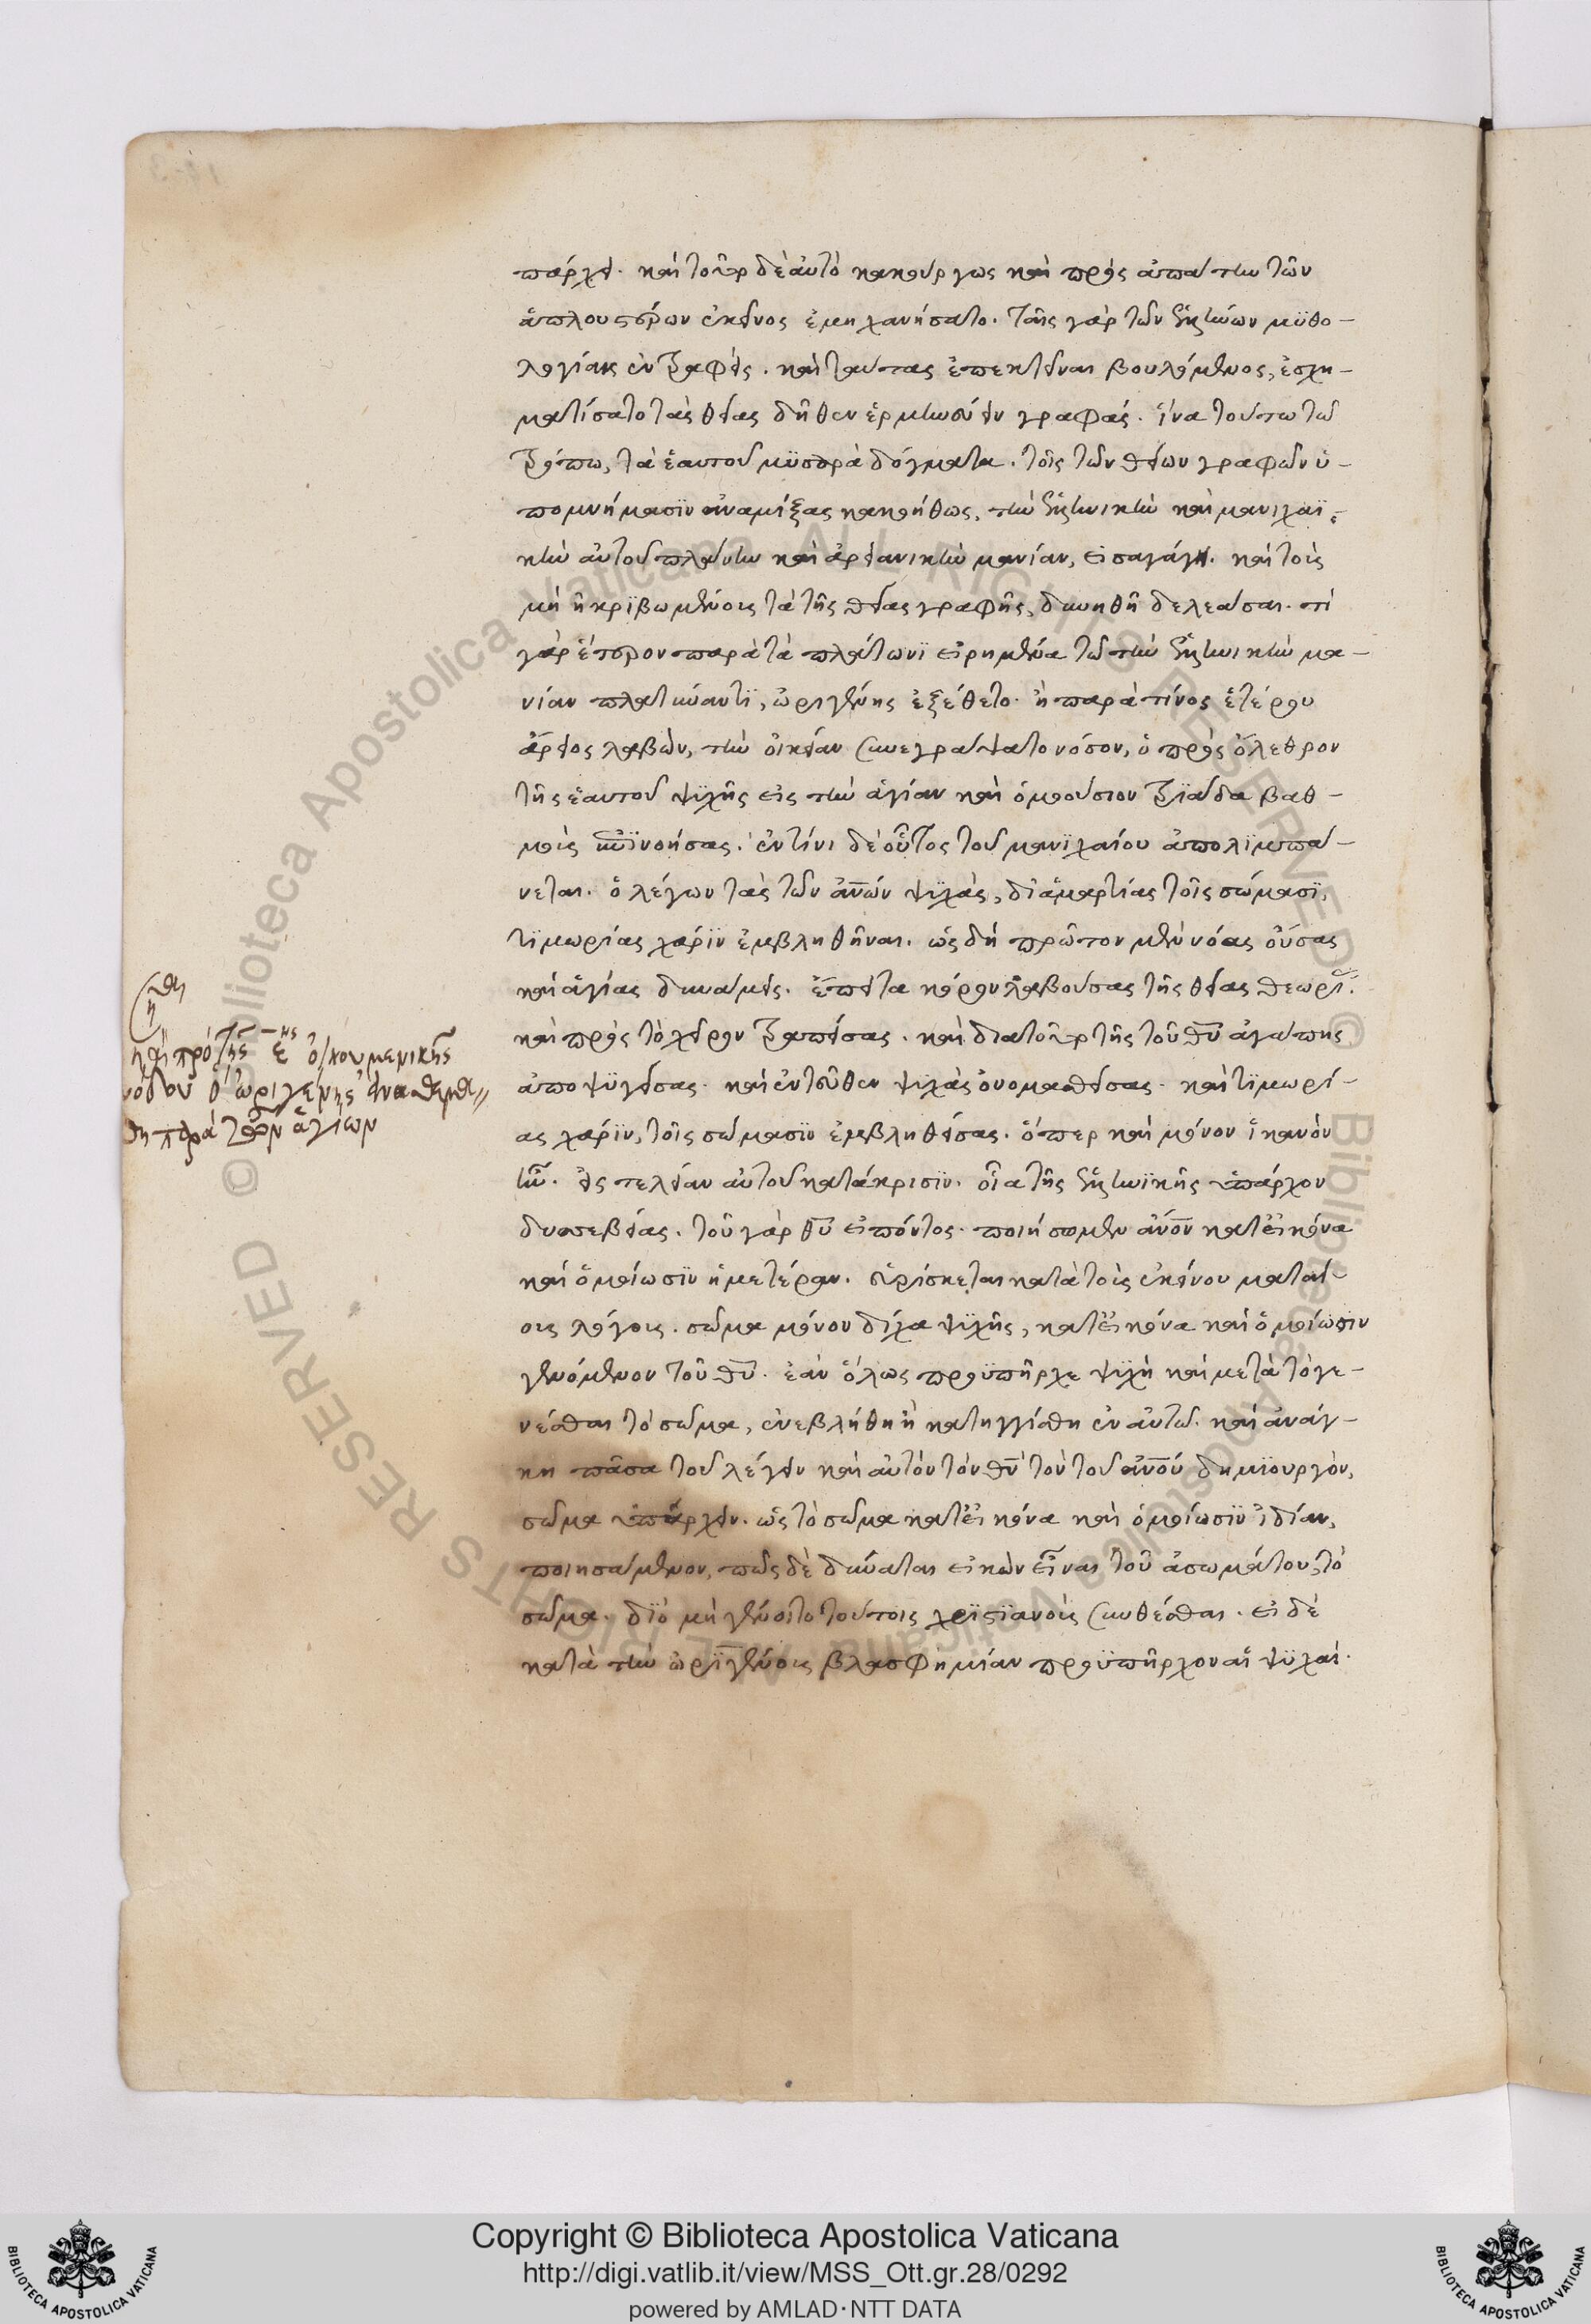 πάρχει. καὶ τοῦτο δὲ αὐτὸ κακούργως καὶ πρὸς ἀπάτην τῶν
ἁπλουστέρων ἐκεῖνος ἐμηχανήσατο. ταῖς γὰρ τῶν ἑλλήνων μϋθο-
λογίαις ἐντραφεὶς. καὶ ταύτας ἐπεκτεῖναι βουλόμενος, ἐσχη-
ματίσατο τὰς θείας δῆθεν ἑρμηνεύειν γραφάς. ἵνα τούτω τῶ
τρόπω, τὰ ἑαυτοῦ μϋσαρὰ δόγματα. τοῖς τῶν θείων γραφῶν ὑ-
πομνήμασϊν ἀναμίξας κακοήθως, τὴν ἑλληνικὴν καὶ μανιχαϊ-
κὴν αὐτοῦ πλάνην καὶ ἀρειανικὴν μανίαν, εἰσαγάγη. καὶ τοὺς
μὴ ἠκρϊβωμένους τὰ τῆς θείας γραφῆς, δυνηθῆ δελεάσαι. τί
γὰρ ἕτερον παρὰ τὰ πλάτωνϊ εἰρημένα τῶ τὴν ἑλληνικὴν μα-
νίαν πλατύναντϊ, ὠριγένης ἐξέθετο. ἢ παρὰ τίνος ἑτέρου
ἄρειος λαβὼν, τὴν οἰκείαν συνεγράψατο νόσον, ὁ πρὸς ὄλεθρον
τῆς ἑαυτοῦ ψϋχῆς εἰς τὴν ἁγίαν καὶ ὁμοούσιον τρϊάδα βαθ-
μοὺς ἐπϊνοήσας. ἐν τίνι δὲ οὗτος τοῦ μανϊχαίου ἀπολϊμπά-
νεται. ὁ λέγων τὰς τῶν ἀν̅ων ψϋχὰς, δι ἁμαρτίας τοῖς σώμασϊ,
τϊμωρίας χάρϊν ἐμβληθῆναι. ὡς δὴ πρῶτον μὲν νόας οὔσας
καὶ ἁγίας δυνάμεις. ἔπειτα κόρον λαβούσας τῆς θείας θεωρί.
καὶ πρὸς τὸ χεῖρον τραπείσας. καὶ διατοῦτο τῆς τοῦ θ̅υ ἀγάπης
ἀποψϋγείσας. καὶ ἐντεῦθεν ψϋχὰς ὀνομασθείσας. καὶ τϊμωρί-
ας χάρϊν, τοῖς σώμασϊν ἐμβληθείσας. ὅπερ καὶ μόνον ἱκανὸν
ἦν. εἰς τελείαν αὐτοῦ κατάκρισϊν. οἷα τῆς ἑλληνϊκῆς ὑπάρχον
δυσσεβείας. τοῦ γὰρ θ̅υ εἰπόντος. ποιήσωμεν ἀν̅ον κατ εἰκόνα
καὶ ὁμοίωσϊν ἡμετέραν. εὑρίσκεται κατὰ τοὺς ἐκείνου ματαί-
ους λόγους. σῶμα μόνον δίχα ψϋχῆς, κατ εἰκόνα καὶ ὁμοίωσιν
γενόμενον τοῦ θ̅υ. ἐὰν ὅλως προϋπῆρχε ψϋχὴ καὶ μετὰ τὸ γε-
νέσθαι τὸ σῶμα, ἐνεβλήθη ἢ κατηγγίσθη ἐν αὐτῶ. καὶ ἀνάγ-
κη πᾶσα τοῦ λέγειν καὶ αὐτὸν τὸν θ̅ν τὸν τοῦ ἀν̅ου δημϊουργὸν,
σῶμα ὑπάρχειν. ὡς τὸ σῶμα κατ εἰκόνα καὶ ὁμοίωσϊν ἰδίαν,
ποιησάμενον, πῶς δὲ δύναται εἰκὼν εἶναι τοῦ ἀσωμάτου, τὸ
σῶμα. δϊὸ μὴ γένοιτο τούτοις χρϊστϊανοὺς συνθέσθαι. εἰ δὲ
κατὰ τὴν ὠρϊγένους βλασφημίαν προϋπῆρχον αἱ ψϋχαὶ.
καὶ πρὸ τῆς ε̅ης οἰκουμενικῆς
νόδου ὁ ὠριγένης ἀναθεματι
θη παρὰ τῶν ἁγίων